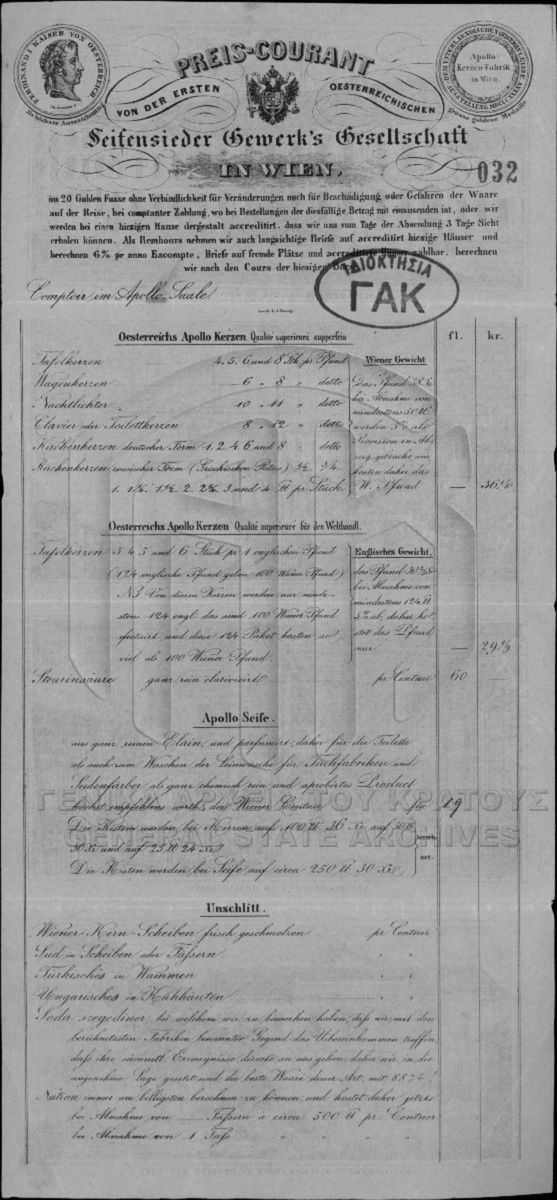 FERDINAND I KAISER VON OESTERREICH
PREIS-COURANT
VON DER ERSTEN OESTERREICHISCHEN
Apollo-
Kerzen-Fabrik
in Wien.
grosse goldene Medaille
Seifensieder Gewerk's Gesellschaft
IN WIEN.
032
im 20 Gulden Fusse ohne Verbindlichkeit für Veränderungen noch für Beschädigung oder Gefahren der Waare
auf der Reise, bei comptanter Zahlung, wo bei Bestellungen der diesfällige Betrag mit einzusenden ist, oder wir
werden bei einen hiezigen Hause dergestalt accreditirt, dass wir uns vom Tage der Absendung 3 Tage Sicht
erholen können. Als Rembours nehmen wir auch langsichtige Briefe auf accreditirt hiesige Häuser und
berechnen 6% pr anno Escompte, Briefe auf fremde Plätze und accreditirte Häuser zahlbar, berechnen
wir nach den Cours der hiesigen
ΙΔΙΟΚΤΗΣΙΑ
ΓΑΚ
Comptoir im Apollo-Saale
Oesterreichs Apollo Kerzen Qualité superieuré suppertin fl. kr.
Tafelkerzen 4. 5. 6 und 8 Stk. pr. Pfund Wiener Gewicht
Wagenkerzen 6 " 8 " detto Das Pfund 38 Xr
Nachtlichter 10 " 11 " detto bei Abnahme von
Clavier oder Toilettkerzen 8 " 12 " detto mindestens 50 ℔ werden 5% als
Kirchenkerzen deutscher Form 1. 2. 4. 6 und 8 detto Provision in Abzug gebracht,
Kirchenkerzen russischer Form (Griechischen Ritus) ½ ¾ kosten daher das
2. 3 und 4 ℔ pr Stück W. Pfund — 36
Oesterreichs Apollo Kerzen Qualité superieuré für den Welthandl.
Tafelkerzen 3 4. 5 und 6 Stück pr 1 englisches Pfund Englisches Gewicht.
(124 englische Pfund geben 100 Wiener Pfund) das Pfund
NB Von diesen Kerzen werden nur minde- bei Abnahme von
stens 124 engl. das sind 100 Wiener Pfund mindestens 124 ℔
efectuirt und diese 124 Paket kosten so 5% ab, daher ko-
viel als 100 Wiener Pfund. stet das Pfund nur — 29
Stearinsäure ganz rein pr Centner 60 —
Apollo Seife.
aus ganz reinen Elain, und parfumirt, daher für die Toilette
als auch zum Waschen der Leinwäsche für Tuchfabriken und
Seidenfärber als ganz chemisch rein und aprobirtes Product
höchst empfehlens werth, der Wiener Centner fl 19
ΓΕΝΙΚΑ ΑΡΧΕΙΑ ΤΟΥ ΚΡΑΤΟΥΣ
GENERAL STATE ARCHIVES
Die Kisten werden, bei Kerzen auf 100 ℔ 36 Xr auf 50 ℔
30 Xr und auf 25 ℔ 24 Xr
Die Kisten werden bei Seife auf circa 250 ℔ 30 Xr
berech-
net.
Unschlitt.
Wiener Kern-Scheiben frisch geschmolzen pr Centner
Sud in Scheiben oder Fässern " "
Türkisches in Wammen " "
Ungarisches in Kühhäuten " "
Soda szegediner, bei welchem wir zu bemerken haben, daß wir mit den
berühmtesten Fabriken benannter Gegend das Uebereinkommen treffen
daß ihre sämmtl. Erzeugnisse directe an uns gehen, daher wir in die
angenehme Lage gesetzt sind, die beste Waare dieser Art, mit 88%
Natron immer am billigsten berechnen zu können, und kostet daher jetzt
bei Abnahme von Fässern à circa 500 ℔ pr. Centner
bei Abnahme von 1 Faß " "